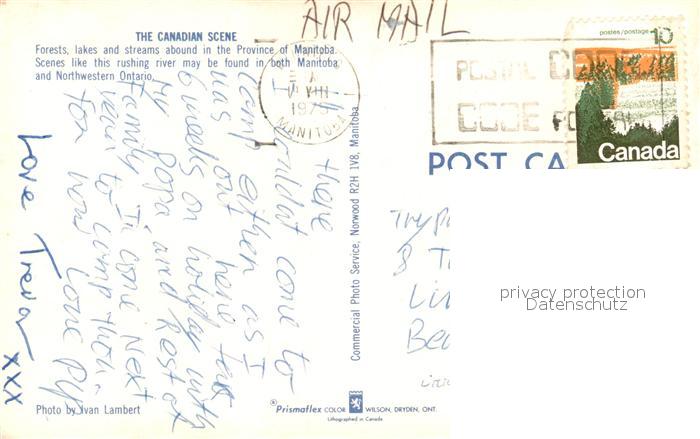 AIR MAIL
THE CANADIAN SCENE
Forests, lakes and streams abound in the Province of Manitoba.
Scenes like this rushing river may be found in both Manitoba
and Northwestern Ontario.
VIII
197
MANITOBA
POSTAL CODE
CODE POSTAL
postes/postage
10
Canada
POST CA
there
I couldn't come to
camp either as I
was out here for
6 weeks on holiday with
my Papa and Rest of
Family I'll come Next
year to Camp tho.
for now
Love
Love Trevor
xxx
Commercial Photo Service, Norwood R2H 1V8, Manitoba
8
privacy protection
Datenschutz
Photo by Ivan Lambert
® Prismaflex COLOR WILSON, DRYDEN, ONT.
Lithographed in Canada